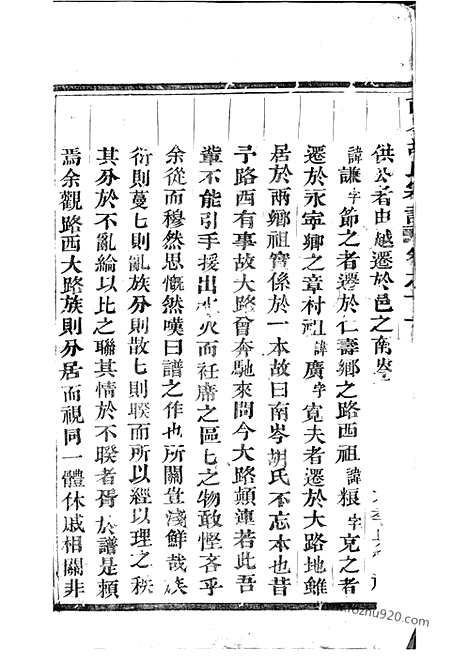 供公者由越遷於邑之南岑
諱謙字節之者遷於仁壽鄉之路西祖諱粮字克之者
遷於永寧鄉之章村祖諱廣字寬夫者遷於大路地雖
居於兩鄉祖實係於一本故曰南岑胡氏不忘本也昔
予路西有事故大路曾奔馳來問今大路顛連若此吾
輩不能引手援出水火而衽席之區乚之物敢慳吝乎
余從而穆然思慨然嘆曰譜之作也所關豈淺鮮哉族
衍則蔓乚則亂族分則散乚則睽而所以經以理之秩
其分於不亂綸以比之聯其情於不睽者胥於譜是賴
焉余觀路西大路族則分居而視同一體休戚相關非